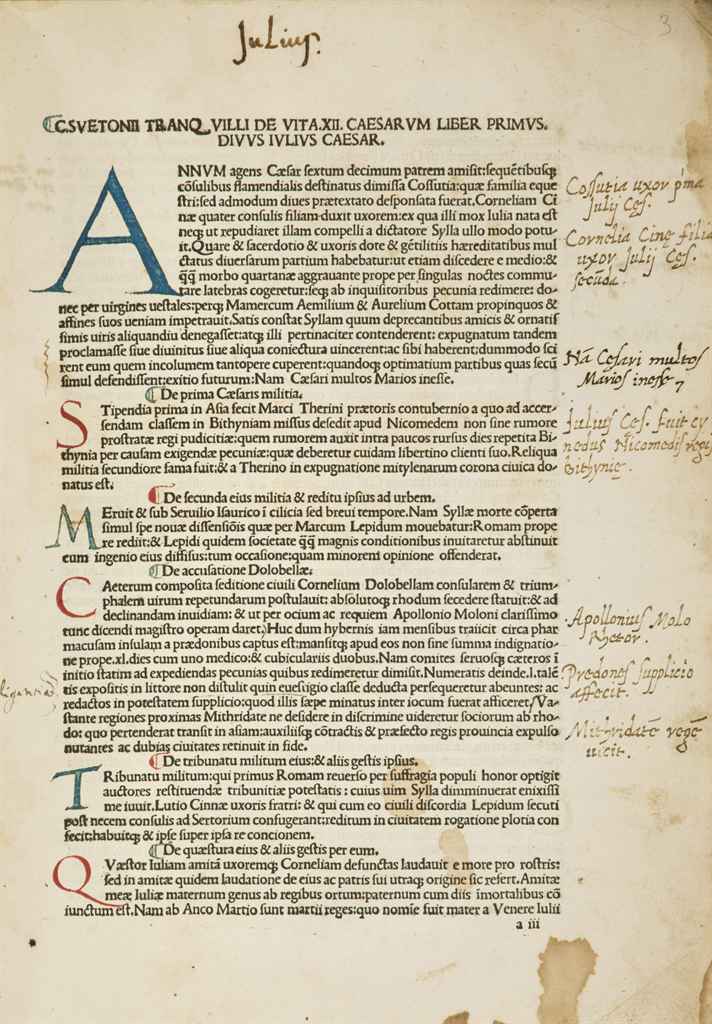 Julius.
3
C. SVETONII TRANQVILLI DE VITA.XII. CAESARVM LIBER PRIMVS.
DIVVS IVLIVS CAESAR.
ANNVM agens Cæsar sextum decimum patrem amisit:sequẽtibusq;
cõsulibus flamendialis destinatus dimissa Cossutia:quæ familia eque
stri:sed admodum diues prætextato desponsata fuerat.Corneliam Ci
næ quater consulis filiam duxit uxorem:ex qua illi mox Iulia nata est
neq; ut repudiaret illam compelli a dictatore Sylla ullo modo potu-
it.Quare & sacerdotio & uxoris dote & gẽtilitiis hæreditatibus mul
ctatus diuersarum partium habebatur:ut etiam discedere e medio:&
q̃q̃ morbo quartanæ aggrauante prope per singulas noctes commu-
tare latebras cogeretur:seq; ab inquisitoribus pecunia redimere: do-
nec per uirgines uestales:perq; Mamercum Aemilium & Aurelium Cottam propinquos &
affines suos ueniam impetrauit.Satis constat Syllam quum deprecantibus amicis & ornatis
simis uiris aliquandiu denegasset:atq; illi pertinaciter contenderent: expugnatum tandem
proclamasse siue diuinitus siue aliqua coniectura uincerent:ac sibi haberent:dummodo sci
rent eum quem incolumem tantopere cuperent:quandoq; optimatium partibus quas secũ
simul defendissent:exitio futurum:Nam Cæsari multos Marios inesse.
De prima Cæsaris militia.
Stipendia prima in Asia fecit Marci Therini prætoris contubernio a quo ad accer-
sendam classem in Bithyniam missus desedit apud Nicomedem non sine rumore
prostratæ regi pudicitiæ:quem rumorem auxit intra paucos rursus dies repetita Bi-
thynia per causam exigendæ pecuniæ:quæ deberetur cuidam libertino clienti suo.Reliqua
militia secundiore fama fuit:& a Therino in expugnatione mitylenarum corona ciuica do-
natus est.
De secunda eius militia & reditu ipsius ad urbem.
Meruit & sub Seruilio Isaurico ĩ cilicia sed breui tempore.Nam Syllæ morte cõperta
simul spe nouæ dissensiõis quæ per Marcum Lepidum mouebatur:Romam prope
re rediit:& Lepidi quidem societate q̃q̃ magnis conditionibus inuitaretur abstinuit
cum ingenio eius diffisus:tum occasione:quam minorem opinione offenderat.
De accusatione Dolobellæ.
Caeterum composita seditione ciuili Cornelium Dolobellam consularem & trium-
phalem uirum repetundarum postulauit: absolutoq; rhodum secedere statuit:& ad
declinandam inuidiam: & ut per ocium ac requiem Apollonio Moloni clarissimo
tunc dicendi magistro operam daret.Huc dum hybernis iam mensibus traiicit circa phar
macusam insulam a prædonibus captus est:mansitq; apud eos non sine summa indignatio-
ne prope.xl.dies cum uno medico:& cubiculariis duobus.Nam comites seruosq; cæteros ĩ
initio statim ad expediendas pecunias quibus redimeretur dimisit.Numeratis deinde.l.talẽ
tis expositis in littore non distulit quin euestigio classe deducta persequeretur abeuntes: ac
redactos in potestatem supplicio:quod illis sæpe minatus inter iocum fuerat afficeret.Va-
stante regiones proximas Mithridate ne desidere in discrimine uideretur sociorum ab rho-
do: quo pertenderat transit in asiam:auxiliisq; cõtractis & præfecto regis prouincia expulso
nutantes ac dubias ciuitates retinuit in fide.
De tribunatu militum eius:& aliis gestis ipsius.
Tribunatu militum:qui primus Romam reuerso per suffragia populi honor optigit
auctores restituendæ tribunitiæ potestatis : cuius uim Sylla dimminuerat enixissi
me iuuit.Lutio Cinnæ uxoris fratri: & qui cum eo ciuili discordia Lepidum secuti
post necem consulis ad Sertorium confugerant:reditum in ciuitatem rogatione plotia con
fecit:habuitq; & ipse super ipsa re concionem.
De quæstura eius & aliis gestis per eum.
Quæstor Iuliam amitã uxoremq; Corneliam defunctas laudauit e more pro rostris:
sed in amitæ quidem laudatione de eius ac patris sui utraq; origine sic refert.Amitæ
meæ Iuliæ maternum genus ab regibus ortum:paternum cum diis ĩmortalibus cõ
iunctum est.Nam ab Anco Martio sunt martii reges:quo nomĩe fuit mater a Venere Iulii
a iii
Cossutia uxor p̃ma
Julij Ces.
Cornelia Cinę filia
uxor Julij Ces.
secũda.
Nã Cesari multos
Marios inesse
Julius Ces. fuit cy
nedus Nicomedis regis
Bithynię.
Apollonius Molo
Rhetor.
Predones supplicio
affecit.
Mithridatẽ regẽ
uicit.